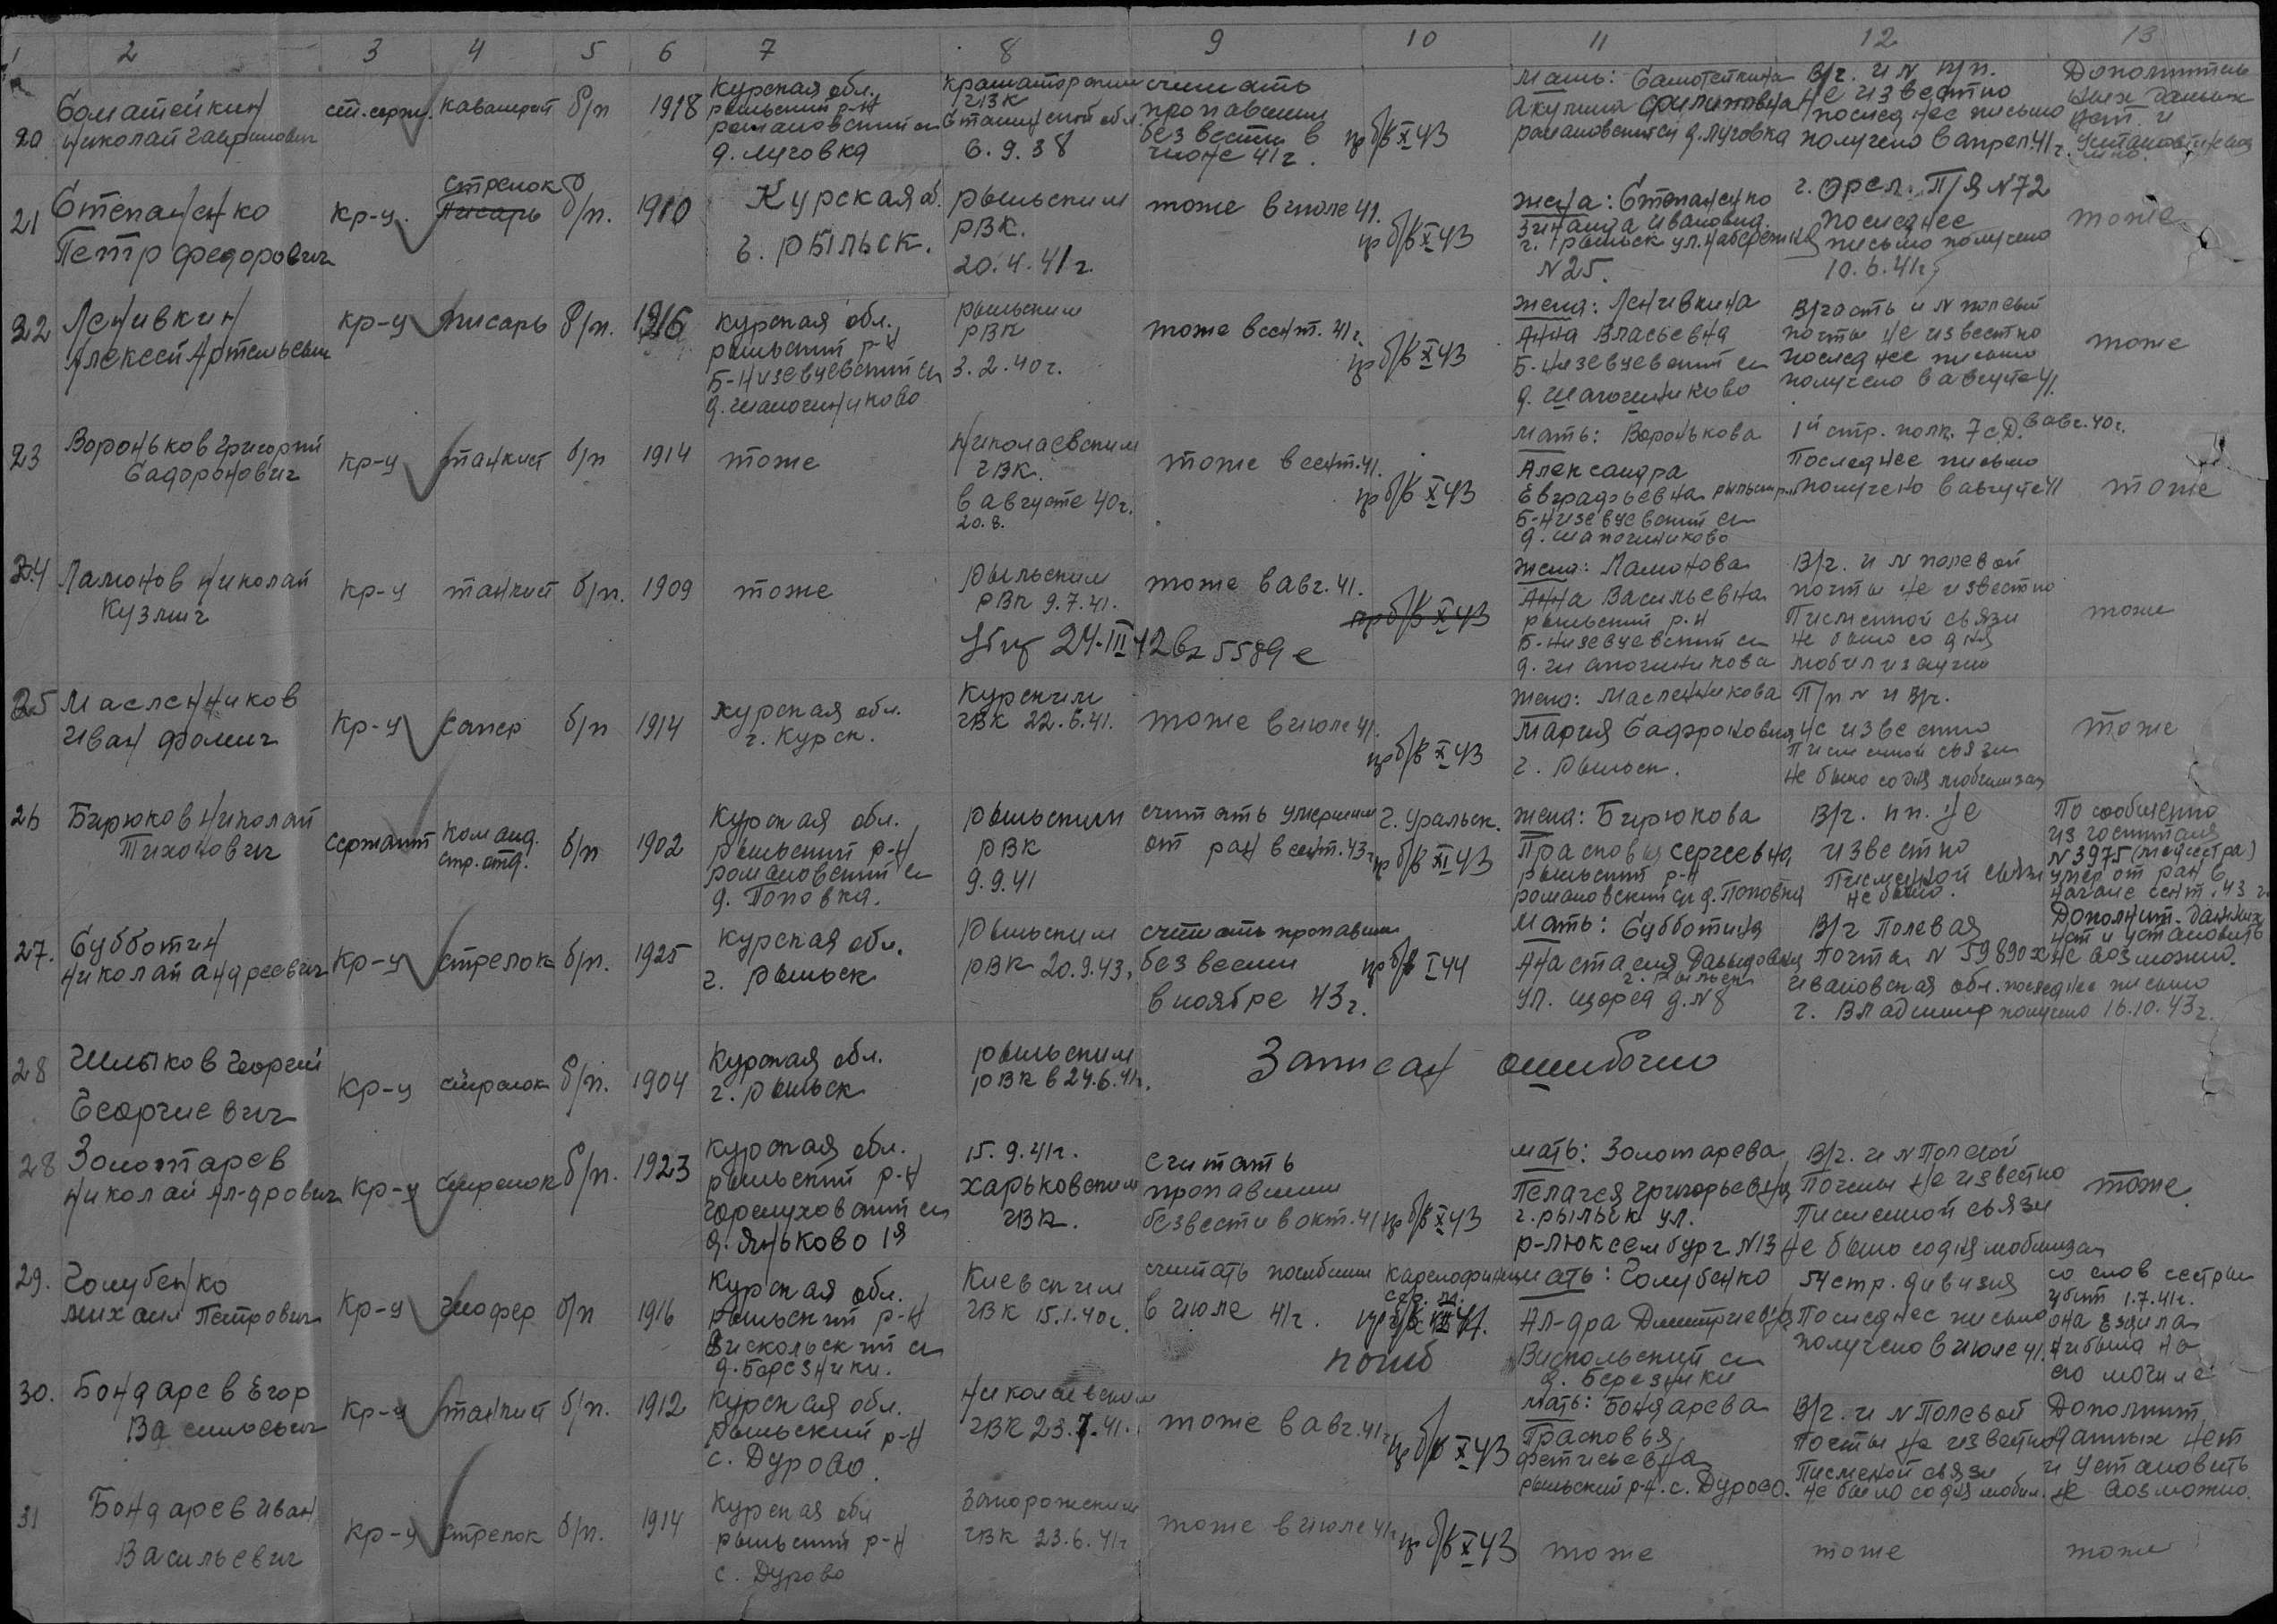 1 2 3 4 5 6 7 8 9 10 11 12 13
20 Соматейкин Николай Гаврилович
ст. серж. кавалерист б/п 1918
Курская обл.
Рыльский р-н
Романовский с/с
д. Луговка
Краматорским
ГВК
Сталинской обл.
6.9.38
считать
пропавшим
без вести в
июне 41г.
пр б/в X 43
мать: Саматейкина
Акулина Филиповна
романовский с/с д. Луговка
В/г. и N п/п.
не известно
последнее письмо
получено в апрел. 41г.
Дополнитель
ных данных
нет и
21 Степаненко
Петр Федорович
кр-ц.
стрелок
писарь
б/п. 1910
Курская о.
г. Рыльск.
Рыльским
РВК.
20.4.41г.
тоже в июле 41.
пр б/в X 43
жена: Степаненко
Зинаида Ивановна.
г. Рыльск ул. Набережная
N 25.
г. Орел. П/Я N 72
Последнее
письмо получено
10.6.41г.
тоже
22 Ленивкин
Алексей Артемьевич
кр-ц писарь б/п. 1916
Курская обл.
Рыльский р-н
Б-Низевцевский с/с
д. Шапошниково
Рыльским
РВК
3.2.40г.
тоже в сент. 41г.
пр б/в X 43
жена: Ленивкина
Анна Власьевна
Б-Низевцевский с/с
д. Шапошниково
В/часть и N полевой
почты не известно
последнее письмо
получено в августе 41.
тоже
23 Вороньков Григорий
Сафронович
кр-ц танкист б/п 1914 тоже
Николаевским
ГВК.
в августе 40г.
20.8.
тоже в сент. 41.
пр б/в X 43
мать: Воронькова
Александра
Евграфьевна Рыльский р-н
Б-Низевцевский с/с
д. Шапошниково
1й стр. полк. 7 с.д. в авг. 40г.
Последнее письмо
получено в августе 41
тоже
24 Ламонов Николай
Кузмич
кр-ц танкист б/п. 1909 тоже
Рыльским
РВК 9.7.41.
тоже в авг. 41.
пр б/в X 43
24.III 42 вх 5589 с
жена: Ламонова
Анна Васильевна
Рыльский р-н
Б-Низевцевский с/с
д. Шапошникова
В/г. и N полевой
почты не известно
Писменной связи
не было со дня
мобилизации
тоже
25 Масленников
Иван Фомич
кр-ц сапер б/п 1914
Курская обл.
г. Курск.
Курским
ГВК 22.6.41.
тоже в июле 41.
пр б/в X 43
жена: Масленникова
Мария Сафроновна
г. Рыльск.
П/п N и в/г.
не известно
Писменной связи
не было со дня мобилизац
тоже
26 Бирюков Николай
Тихонович
сержант
команд.
стр. отд.
б/п 1902
Курская обл.
Рыльский р-н
романовский с/с
д. Поповка.
Рыльским
РВК
9.9.41
считать умершим
от ран в сент. 43г.
г. Уральск.
пр б/в XI 43
жена: Бирюкова
Прасковья Сергеевна
Рыльский р-н
романовский с/с д. Поповка
В/г. пп. не
известно
Писменной связи
не было.
По сообщению
из госпиталя
N 3975 (медсестра)
умер от ран в
начале сент. 43 г.
27. Субботин
Николай Андреевич
кр-ц стрелок б/п. 1925
Курская обл.
г. Рыльск
Рыльским
РВК 20.9.43.
считать пропавшим
без вести
в ноябре 43г.
пр б/в I 44
мать: Субботина
Анастасия Давыдовна
г. Рыльск
ул. Щорса д. N 8
В/г Полевая
почты N 59890х
Ивановская обл. последнее письмо
г. Владимир получено 16.10.43г.
Дополнит. данных
нет и установить
не возможно.
28 Шлыков Георгий
Георгиевич
кр-ц стрелок б/п. 1904
Курская обл.
г. Рыльск
Рыльским
РВК в 24.6.41г.
Записан ошибочно
28 Золотарев
Николай Ал-дрович
кр-ц стрелок б/п. 1923
Курская обл.
Рыльский р-н
Гореуховский с/с
д. Яньково 1я
15.9.41г.
Харьковским
ГВК.
Считать
пропавшим
без вести в окт. 41
пр б/в X 43
мать: Золотарева
Пелагея Григорьевна
г. Рыльск ул.
Р-Люксембург N 13
В/г. и N Полевой
Почты не известно
Писменной связи
не было со дня мобилизац
тоже
29. Голубенко
Михаил Петрович
кр-ц шофер б/п 1916
Курская обл.
Рыльский р-н
Вискольский с/с
д. Березники.
Киевским
ГВК 15.1.40г.
считать погибшим
в июле 41г.
погиб
мать: Голубенко
Ал-дра Дмитриевна
Вискольский с/с
д. Березники
54 стр. дивизия
Последнее письмо
получено в июле 41.
со слов сестры
убит 1.7.41г.
она ездила
и была на
его могиле
30. Бондарев Егор
Васильевич
кр-ц танкист б/п. 1912
Курская обл.
Рыльский р-н
с. Дурово.
Николаевским
ГВК 23.7.41.
тоже в авг. 41г.
пр б/в X 43
мать: Бондарева
Прасковья
Фетисьевна
Рыльский р-н. с. Дурово.
В/г. и N Полевой
Почты не известно
Писменой связи
не было со дня мобил.
Дополнит
данных нет
и установить
не возможно.
31 Бондарев Иван
Васильевич
кр-ц стрелок б/п. 1914
Курская обл
Рыльский р-н
с. Дурово
Запорожским
ГВК 23.6.41г
тоже в июле 41г
пр б/в X 43
тоже тоже тоже